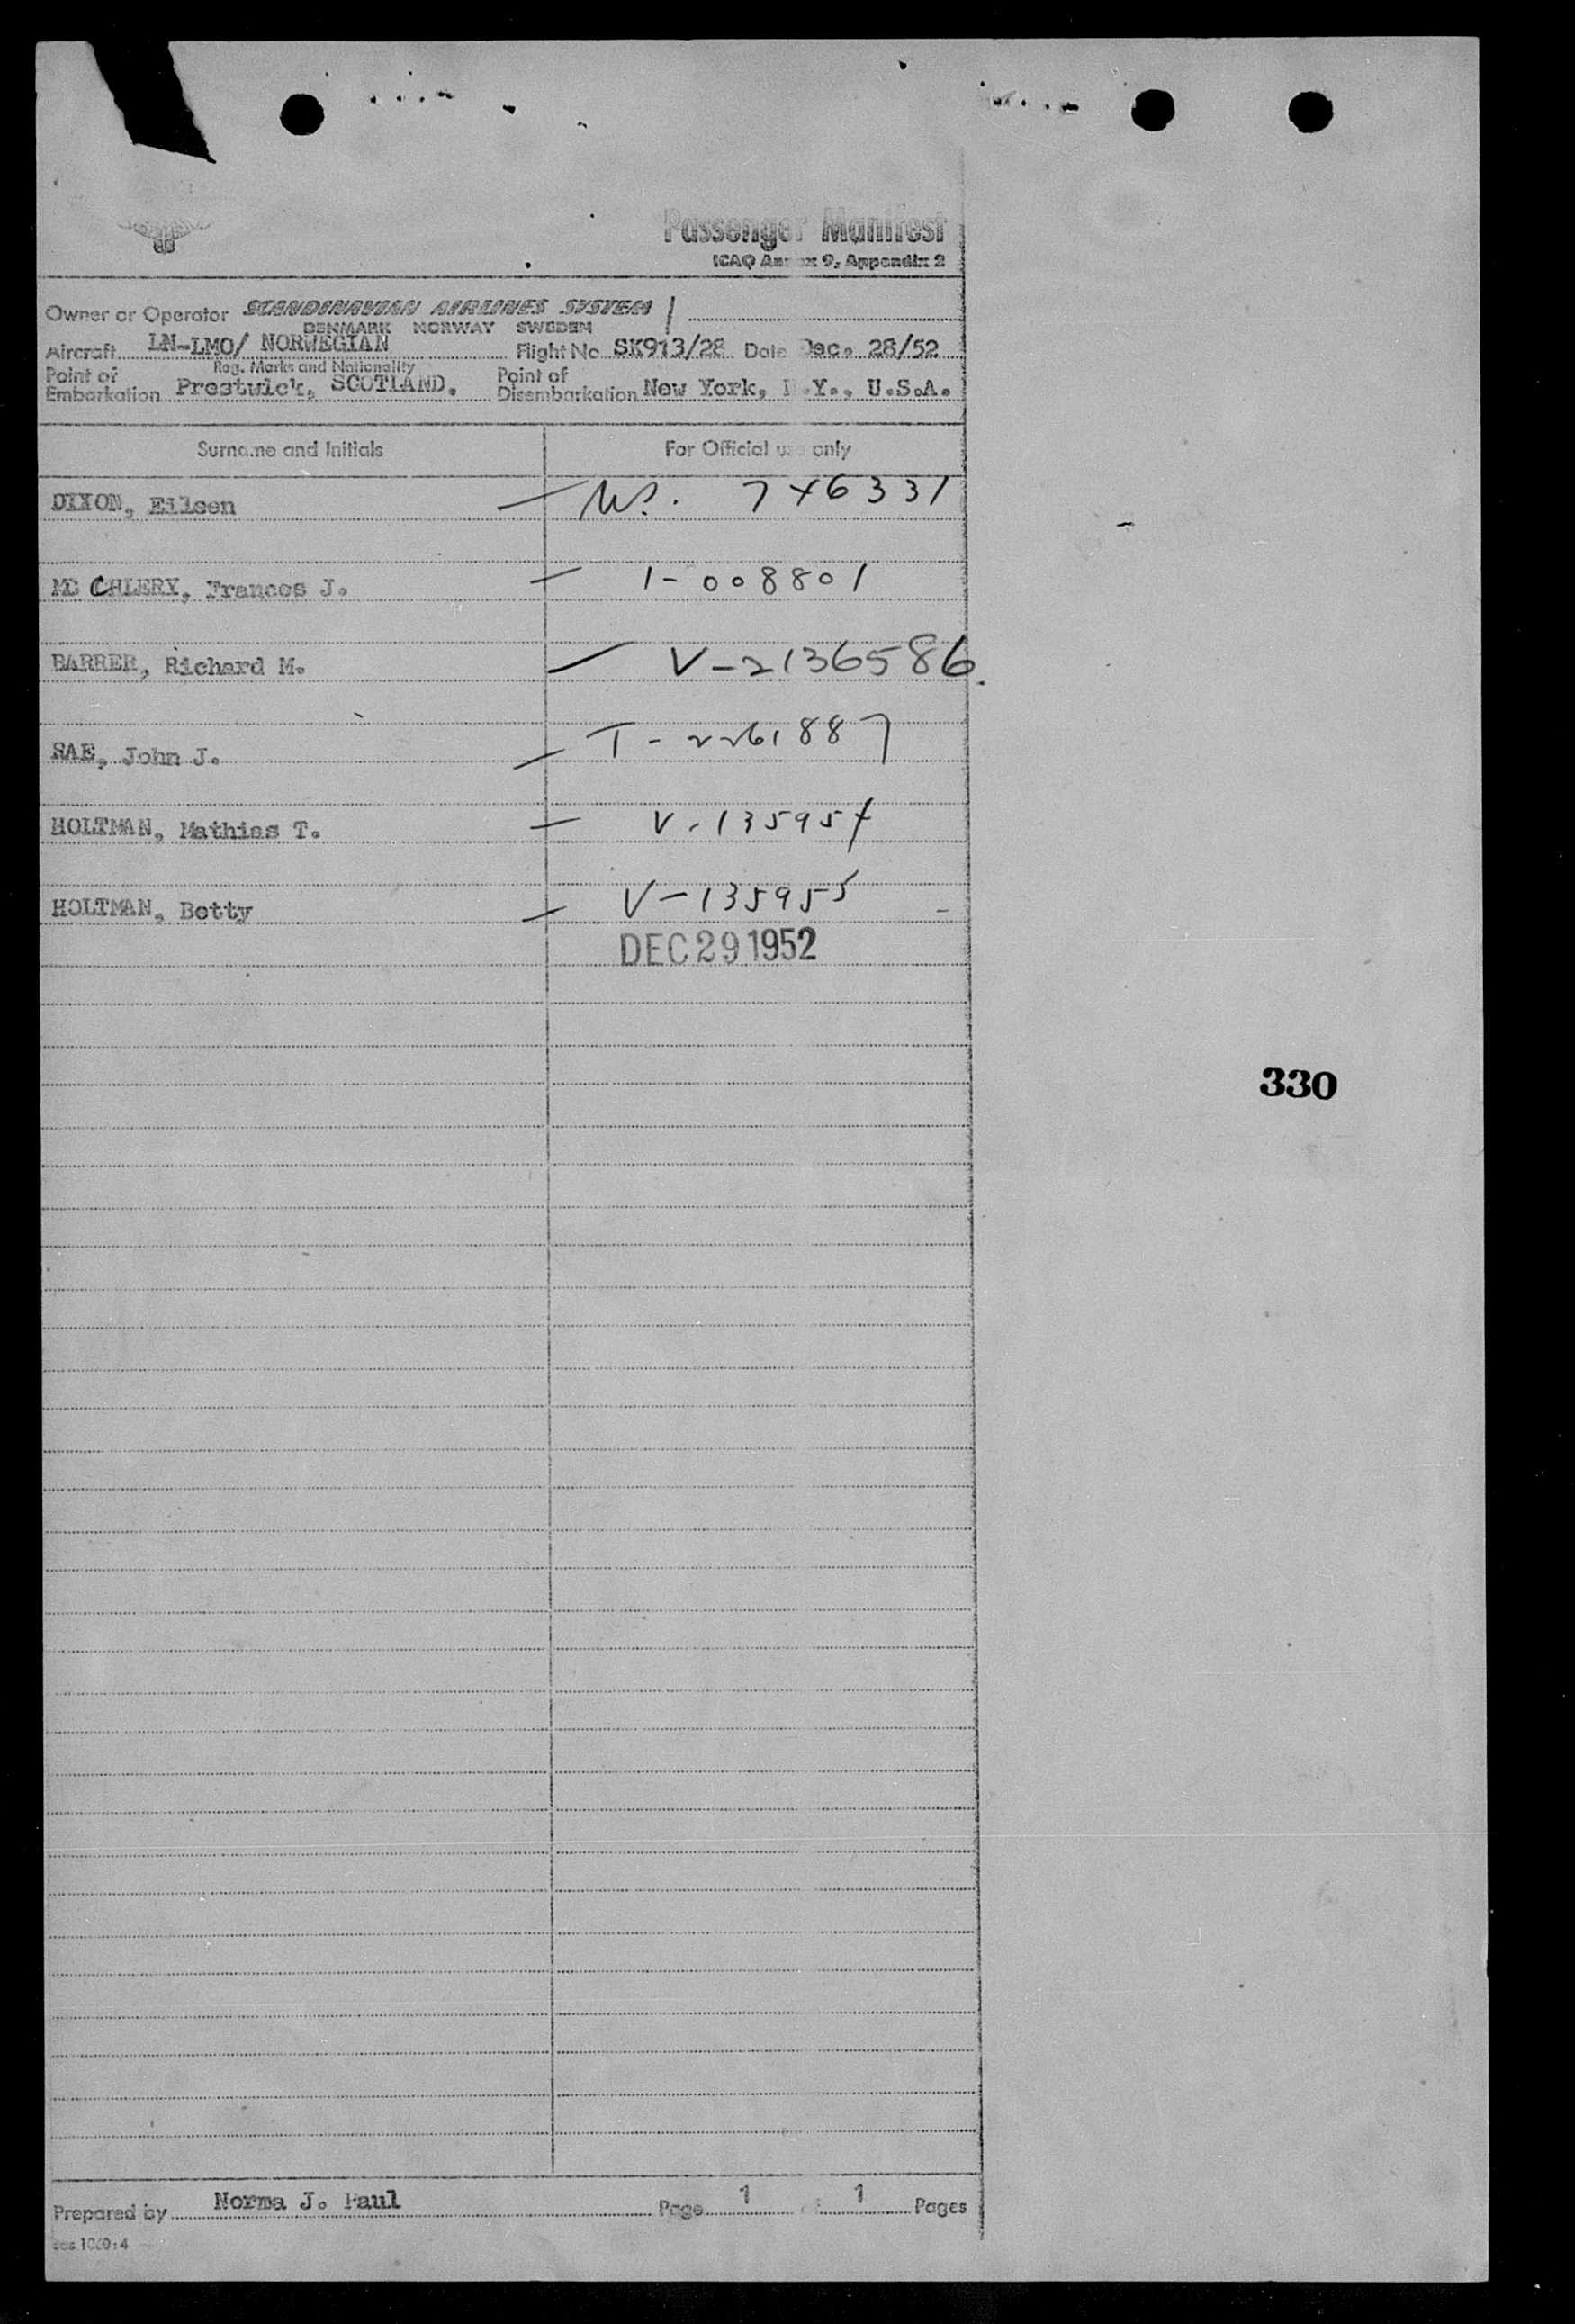 Passenger Manifest
ICAO Annex 9, Appendix 2
Owner or Operator SCANDINAVIAN AIRLINES SYSTEM
DENMARK NORWAY SWEDEN
Aircraft LN-LMO/ NORWEGIAN Flight No. SK913/28 Date Dec. 28/52
Reg. Marks and Nationality
Point of Embarkation Prestwick, SCOTLAND. Point of Disembarkation New York, N.Y., U.S.A.
Surname and Initials For Official use only
DIXON, Eileen 746331
Mc CHLERY, Frances J. 1-008801
BARRER, Richard M. V-2136586
RAE, John J. T-2261887
HOLTMAN, Mathias T. V-135954
HOLTMAN, Betty V-135955
DEC 29 1952
330
Prepared by Norma J. Paul Page 1 of 1 Pages
sas 1060:4